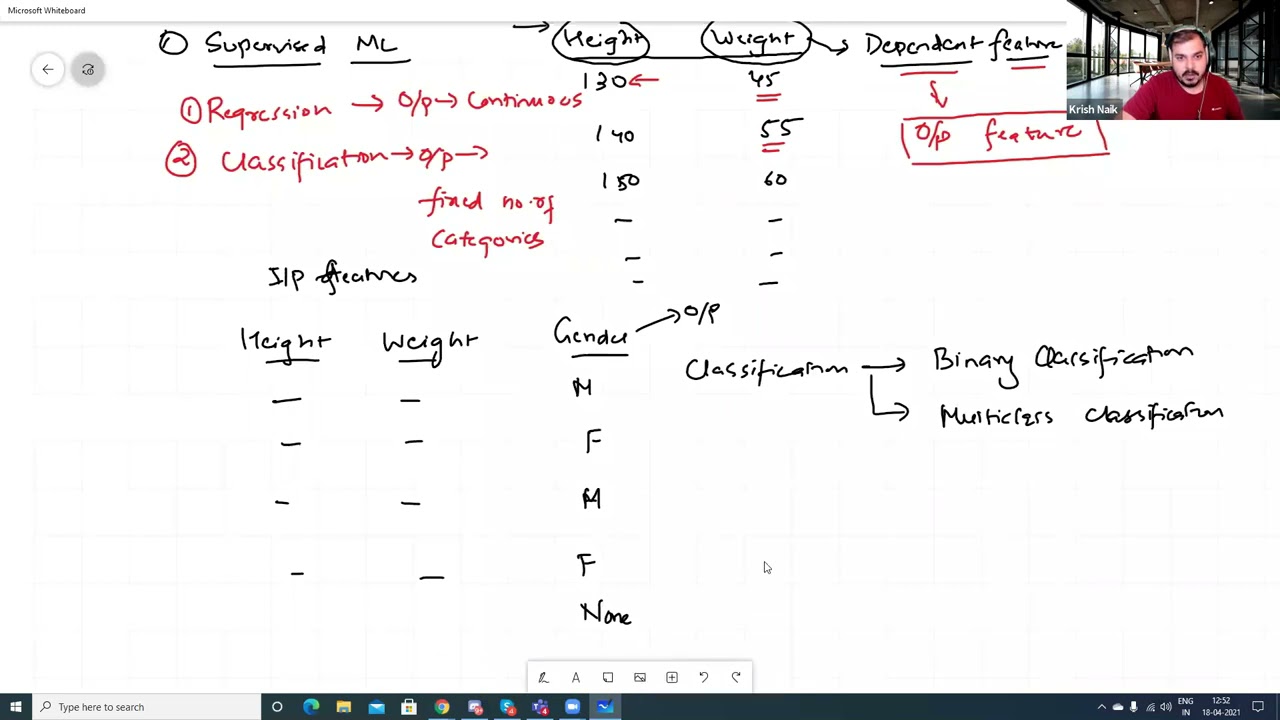 Microsoft Whiteboard
① Supervised ML
Height Weight → Dependent feature
130 ← 45
① Regression → O/p → Continuous
O/p feature
Krish Naik
140 55
② Classification → O/p →
fixed no. of
Categories
150 60
I/P features
Height Weight Gender → O/P
M
F
M
F
None
Classification → Binary Classification
→ Multiclass Classification
Type here to search
ENG
IN
12:52
18-04-2021